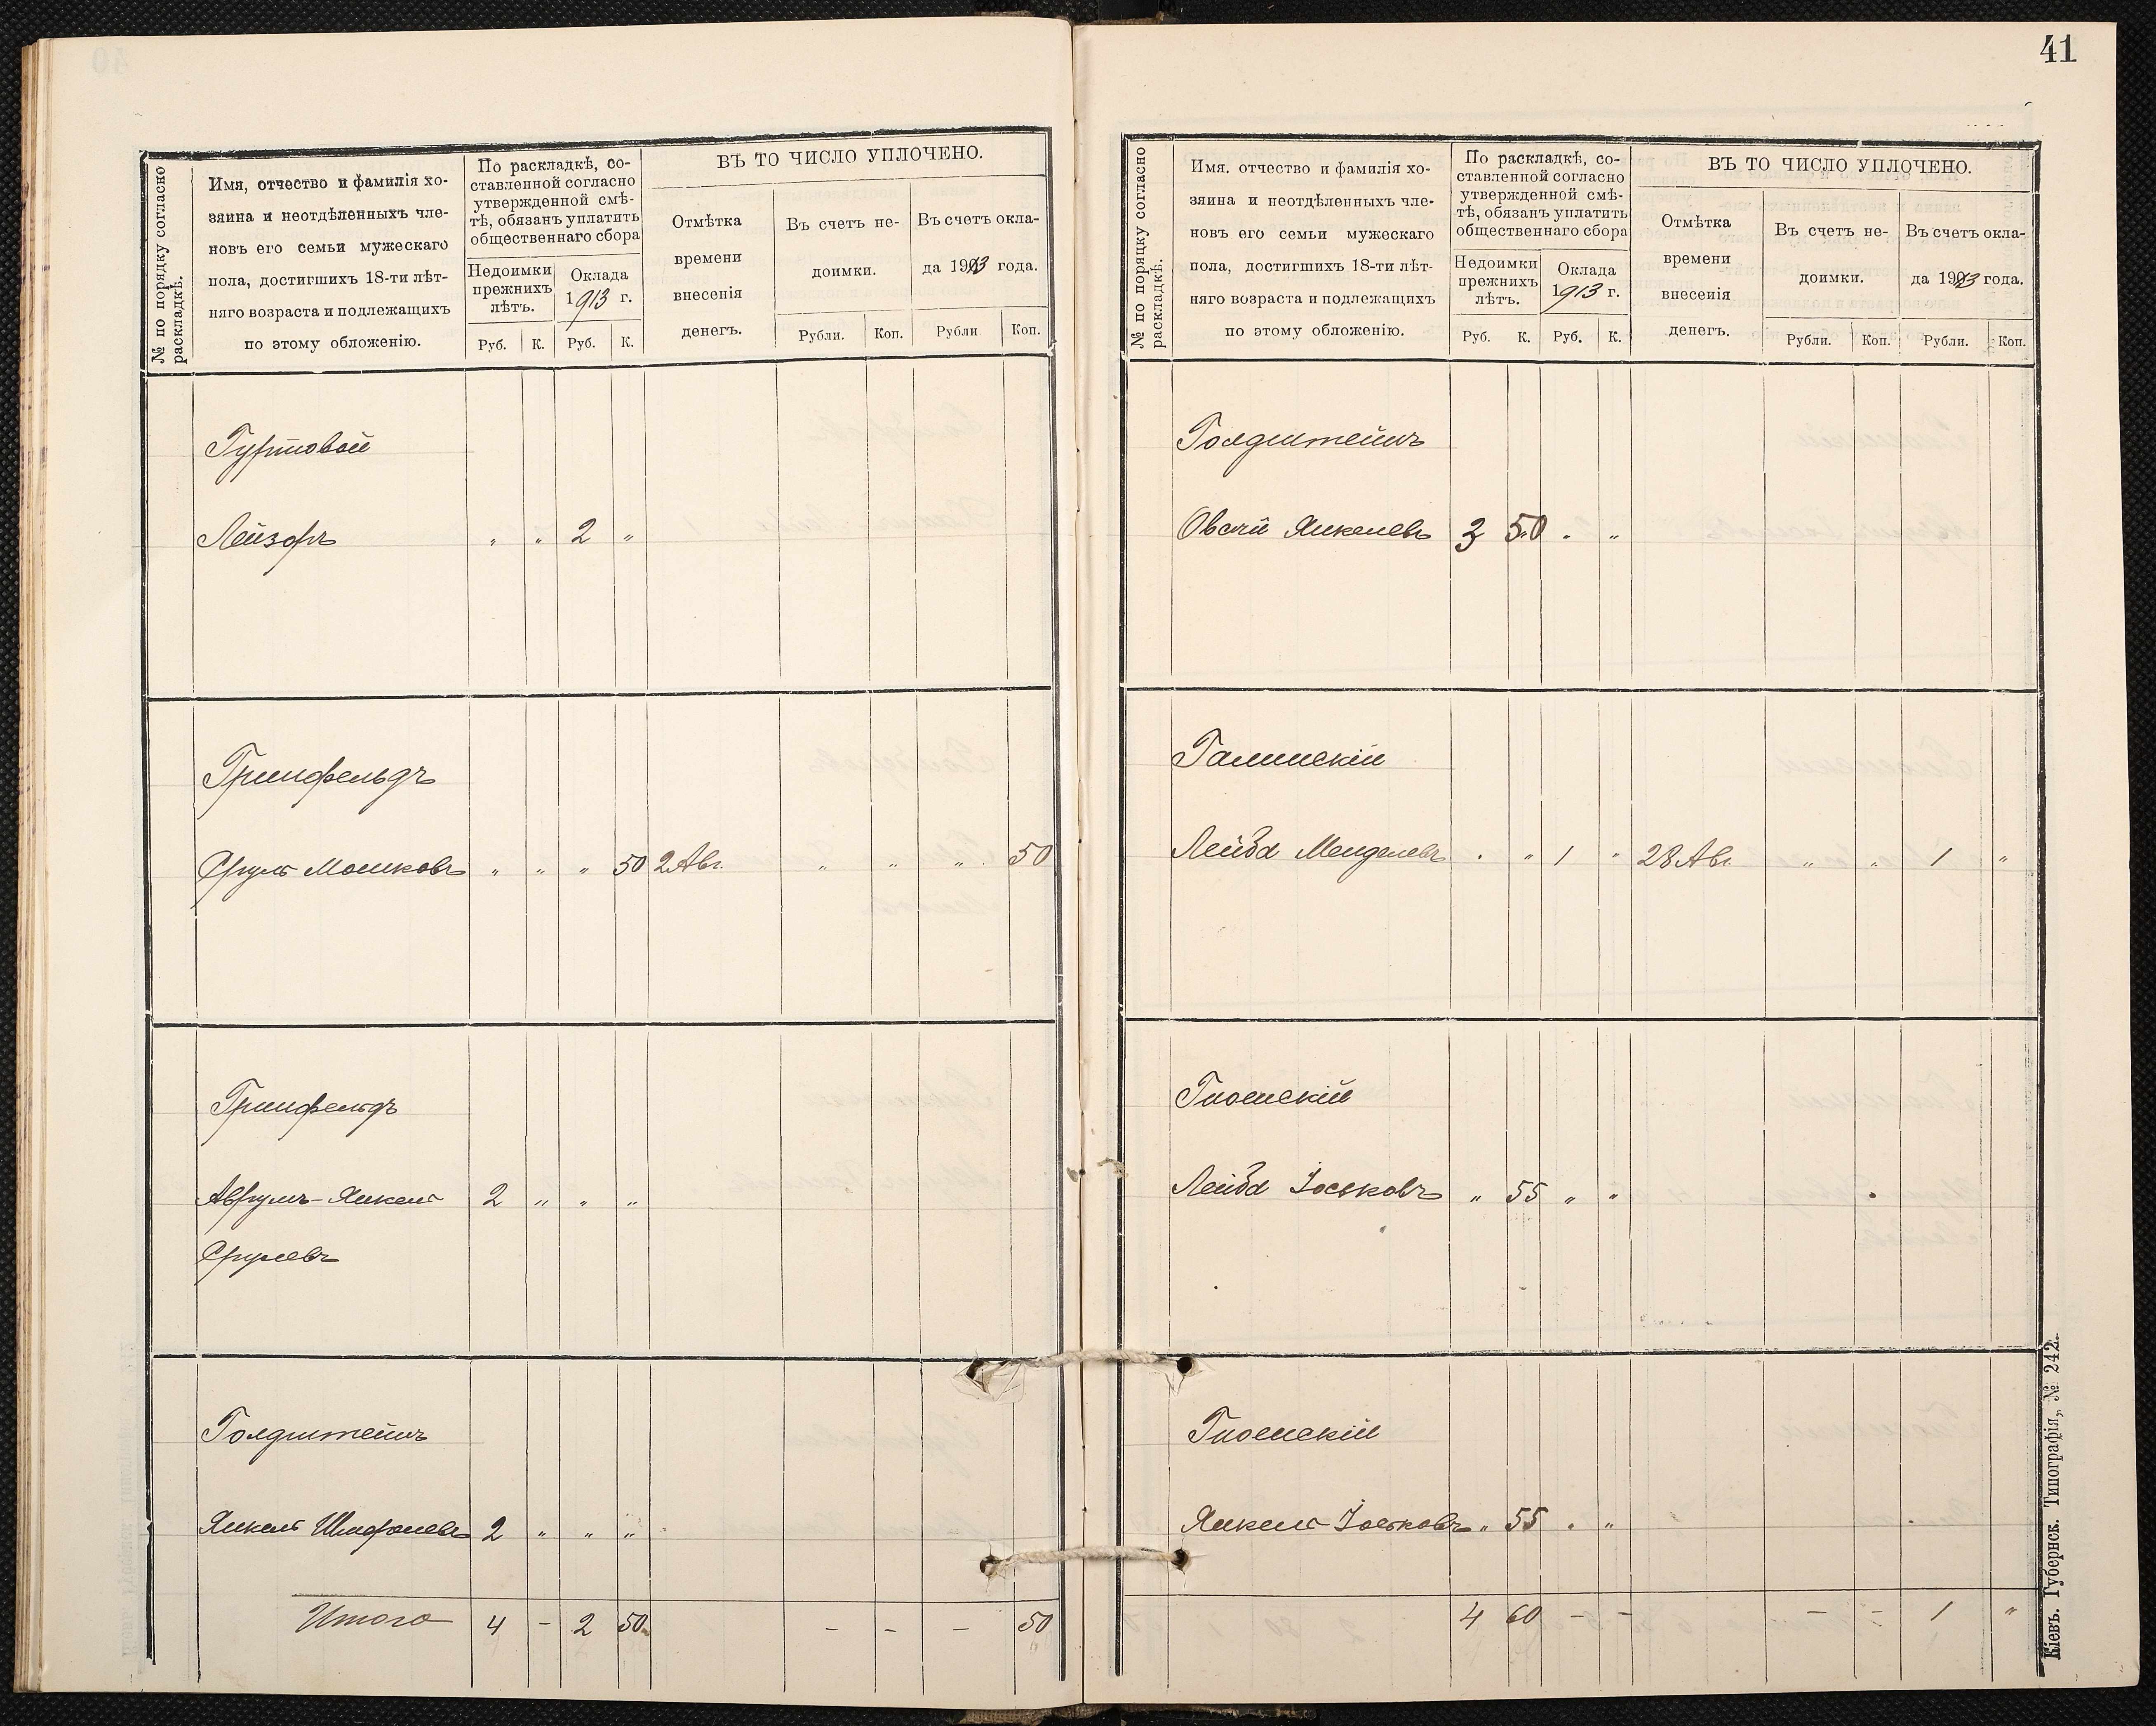 41
№ по порядку согласно раскладкѣ.
Имя, отчество и фамилія хо-
зяина и неотдѣленныхъ чле-
новъ его семьи мужескаго
пола, достигшихъ 18-ти лѣт-
няго возраста и подлежащихъ
по этому обложенію.
По раскладкѣ, со-
ставленной согласно
утвержденной смѣ-
тѣ, обязанъ уплатить
общественнаго сбора
Недоимки
прежнихъ
лѣтъ.
Оклада
1913 г.
Руб. К. Руб. К.
ВЪ ТО ЧИСЛО УПЛОЧЕНО.
Отмѣтка
времени
внесенія
денегъ.
Въ счетъ не-
доимки.
Въ счетъ окла-
да 1913 года.
Рубли. Коп. Рубли. Коп.
Гуртовой
Лейзоръ " " 2 "
Гринфельдъ
Сруль Мошковъ " " " 50 2 Авг. " " " 50
Гринфельдъ
Аврумъ-Янкель 2 " " "
Срулевъ
Голдштейнъ
Янкель Шмероневъ 2 " " "
Итого 4 - 2 50 - - - 50
№ по порядку согласно раскладкѣ.
Имя, отчество и фамилія хо-
зяина и неотдѣленныхъ чле-
новъ его семьи мужескаго
пола, достигшихъ 18-ти лѣт-
няго возраста и подлежащихъ
по этому обложенію.
По раскладкѣ, со-
ставленной согласно
утвержденной смѣ-
тѣ, обязанъ уплатить
общественнаго сбора
Недоимки
прежнихъ
лѣтъ.
Оклада
1913 г.
Руб. К. Руб. К.
ВЪ ТО ЧИСЛО УПЛОЧЕНО.
Отмѣтка
времени
внесенія
денегъ.
Въ счетъ не-
доимки.
Въ счетъ окла-
да 1913 года.
Рубли. Коп. Рубли. Коп.
Голдштейнъ
Овсѣй Янкелевъ 3 50 " "
Галинскій
Лейба Менделевъ " " 1 " 28 Авг. " " 1 "
Гноенскій
Лейба Іоськовъ " 55 " "
Гноенскій
Янкель Іоськовъ " 55 " "
4 60 - - - - 1 "
Кіевъ. Губернск. Типографія, № 242.